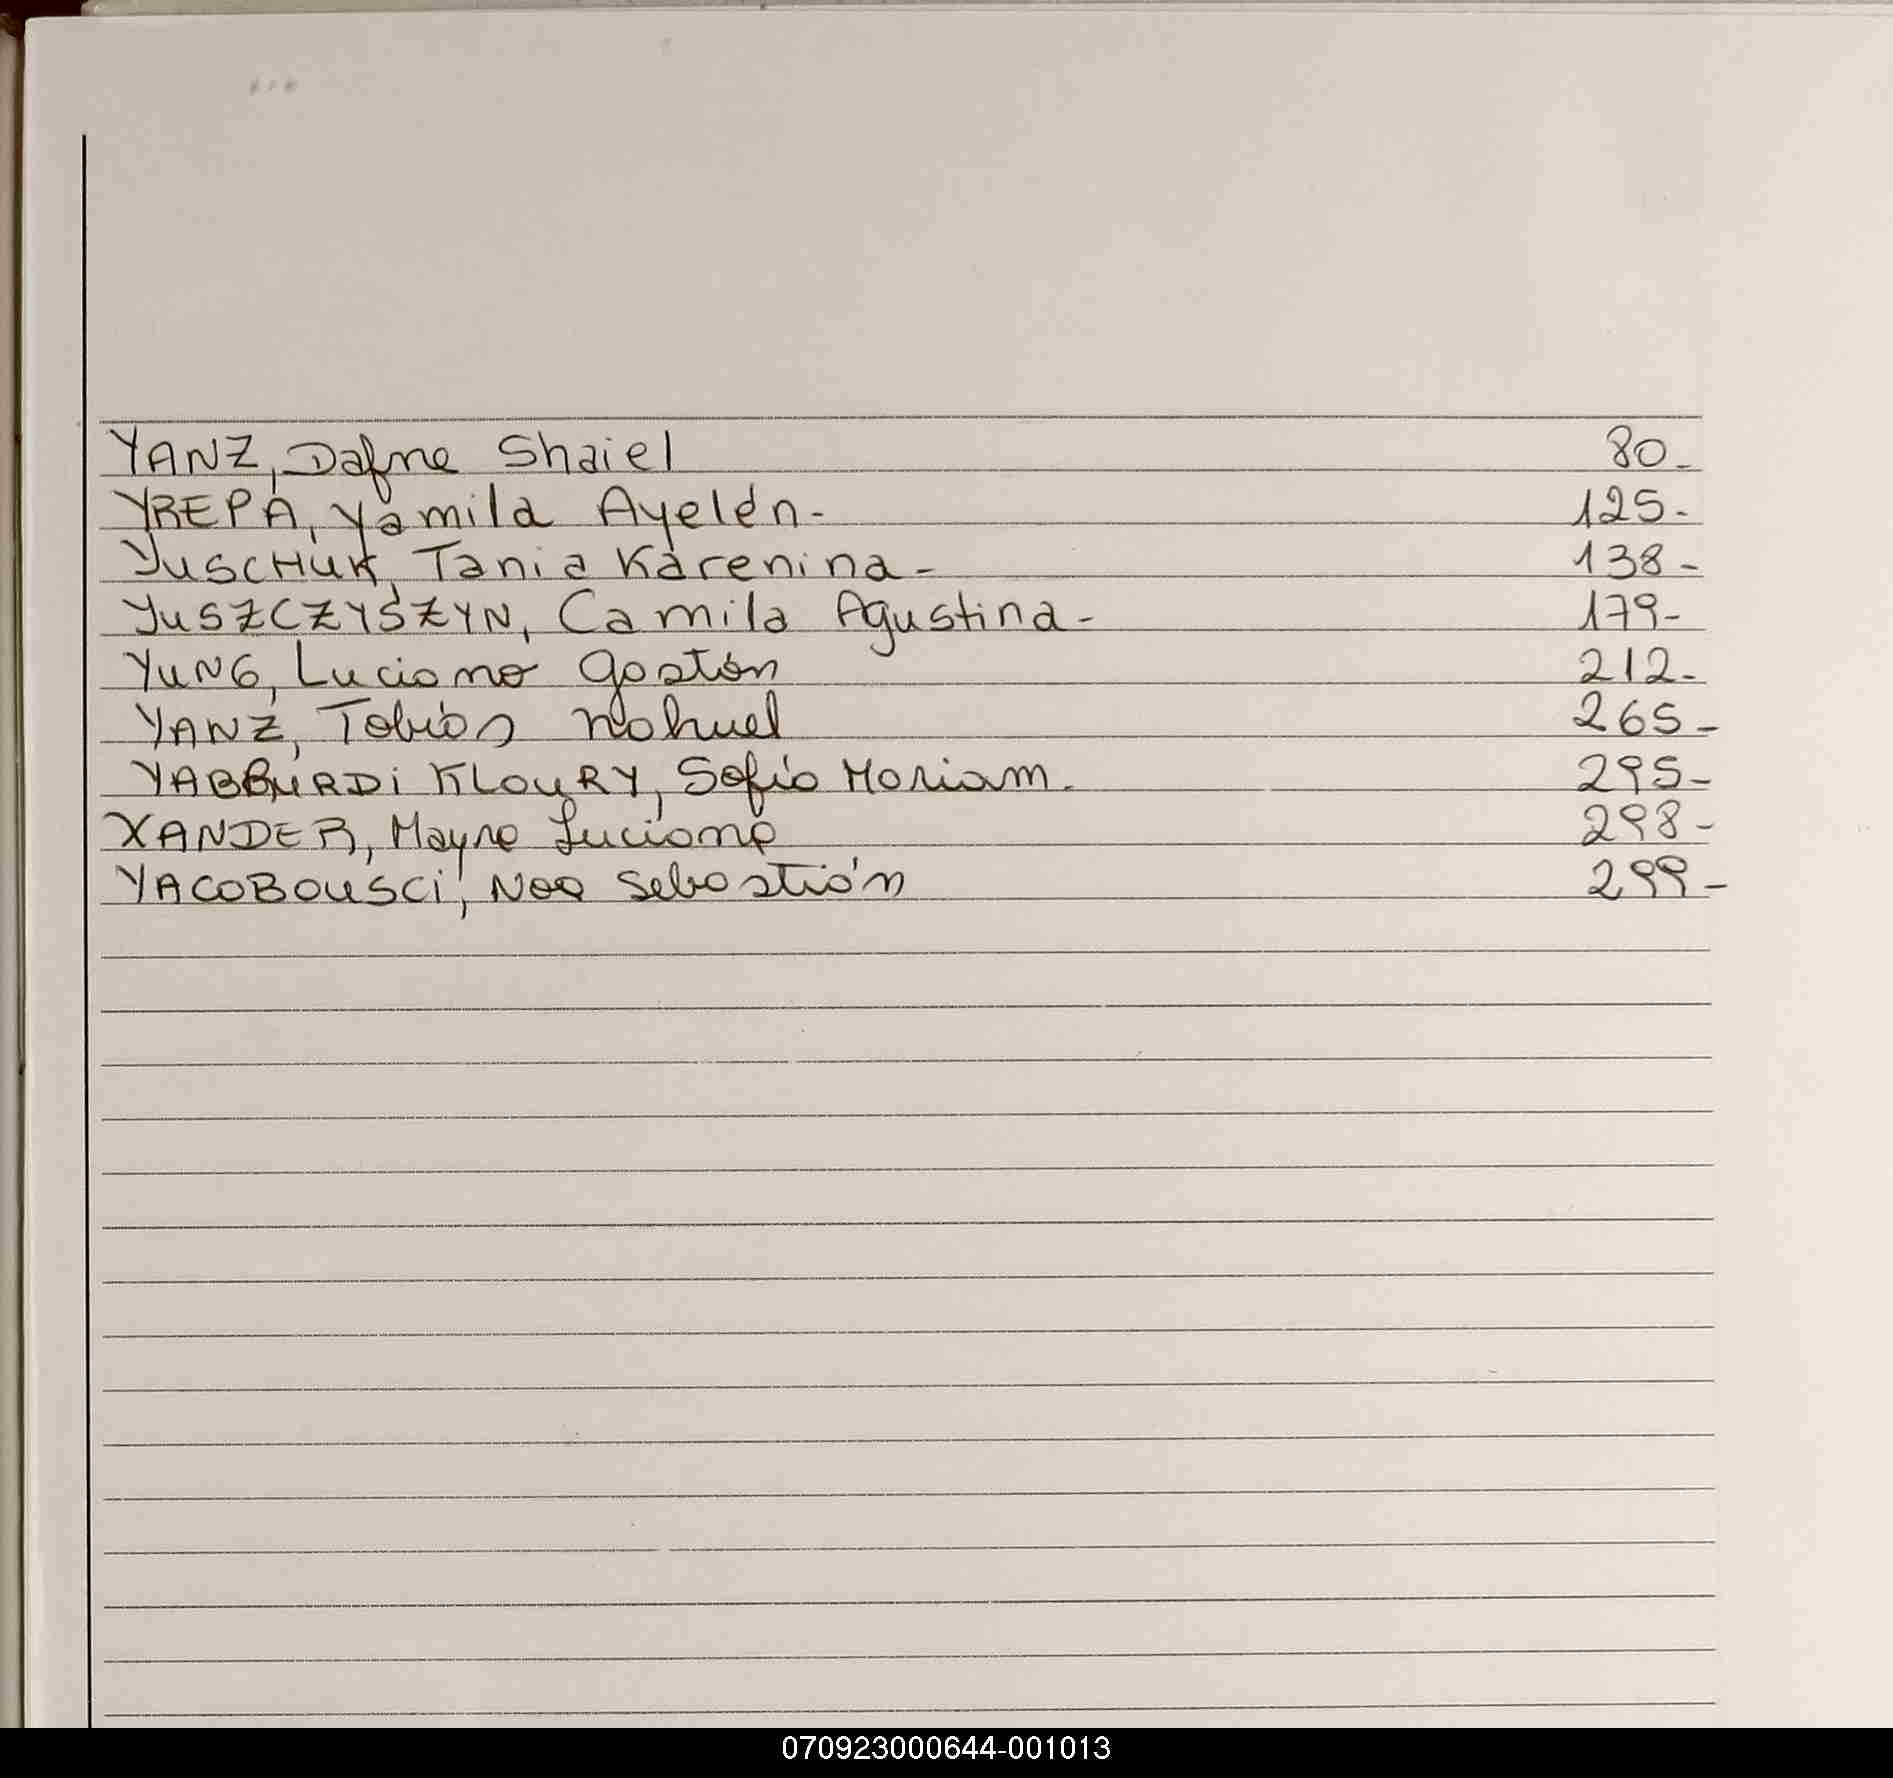 YANZ, Dafne Shaiel 80-
YREPA, Yamila Ayelén- 125-
YUSCHUK, Tania Karenina- 138-
YUSZCZYSZYN, Camila Agustina- 179-
YUNG, Luciano Gastón 212-
YANZ, Tobías Nahuel 265-
YABBURDI KLOURY, Sofía Mariam. 295-
XANDER, Mayra Luciana 298-
YACOBOUSCI, Noa Sebastián 299-
070923000644-001013